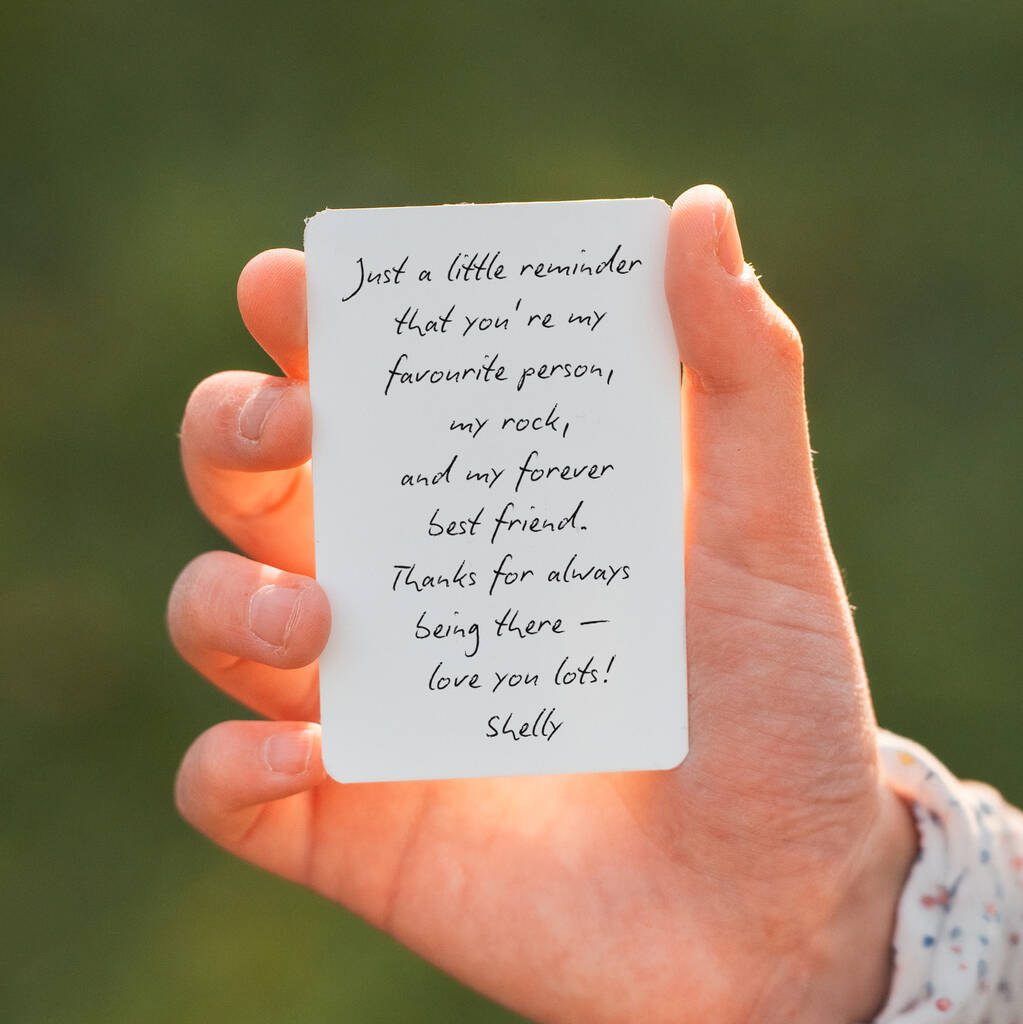 Just a little reminder
that you're my
favourite person,
my rock,
and my forever
best friend.
Thanks for always
being there –
love you lots!
Shelly